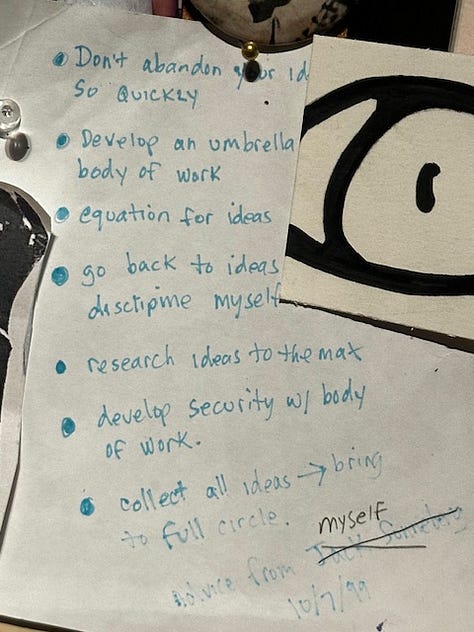 • Don't abandon your id
So QUICKLY
• Develop an umbrella
body of work
• equation for ideas
• go back to ideas
disctipme myself
• research ideas to the max
• develop security w/ body
of work.
• collect all ideas → bring
to full circle.
myself
advice from Jack
10/7/99